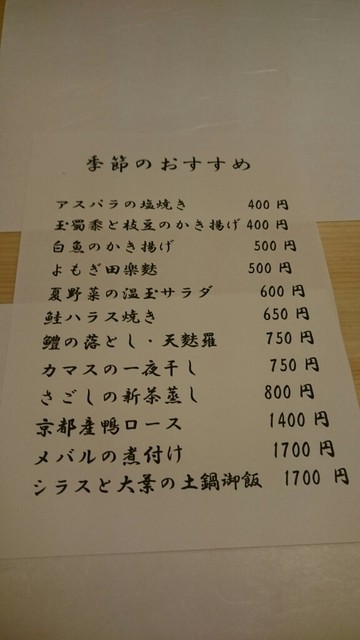 季節のおすすめ
アスパラの塩焼き 400円
玉蜀黍と枝豆のかき揚げ 400円
白魚のかき揚げ 500円
よもぎ田楽麩 500円
夏野菜の温玉サラダ 600円
鮭ハラス焼き 650円
鱧の落とし・天麩羅 750円
カマスの一夜干し 750円
さごしの新茶蒸し 800円
京都産鴨ロース 1400円
メバルの煮付け 1700円
シラスと大葉の土鍋御飯 1700円